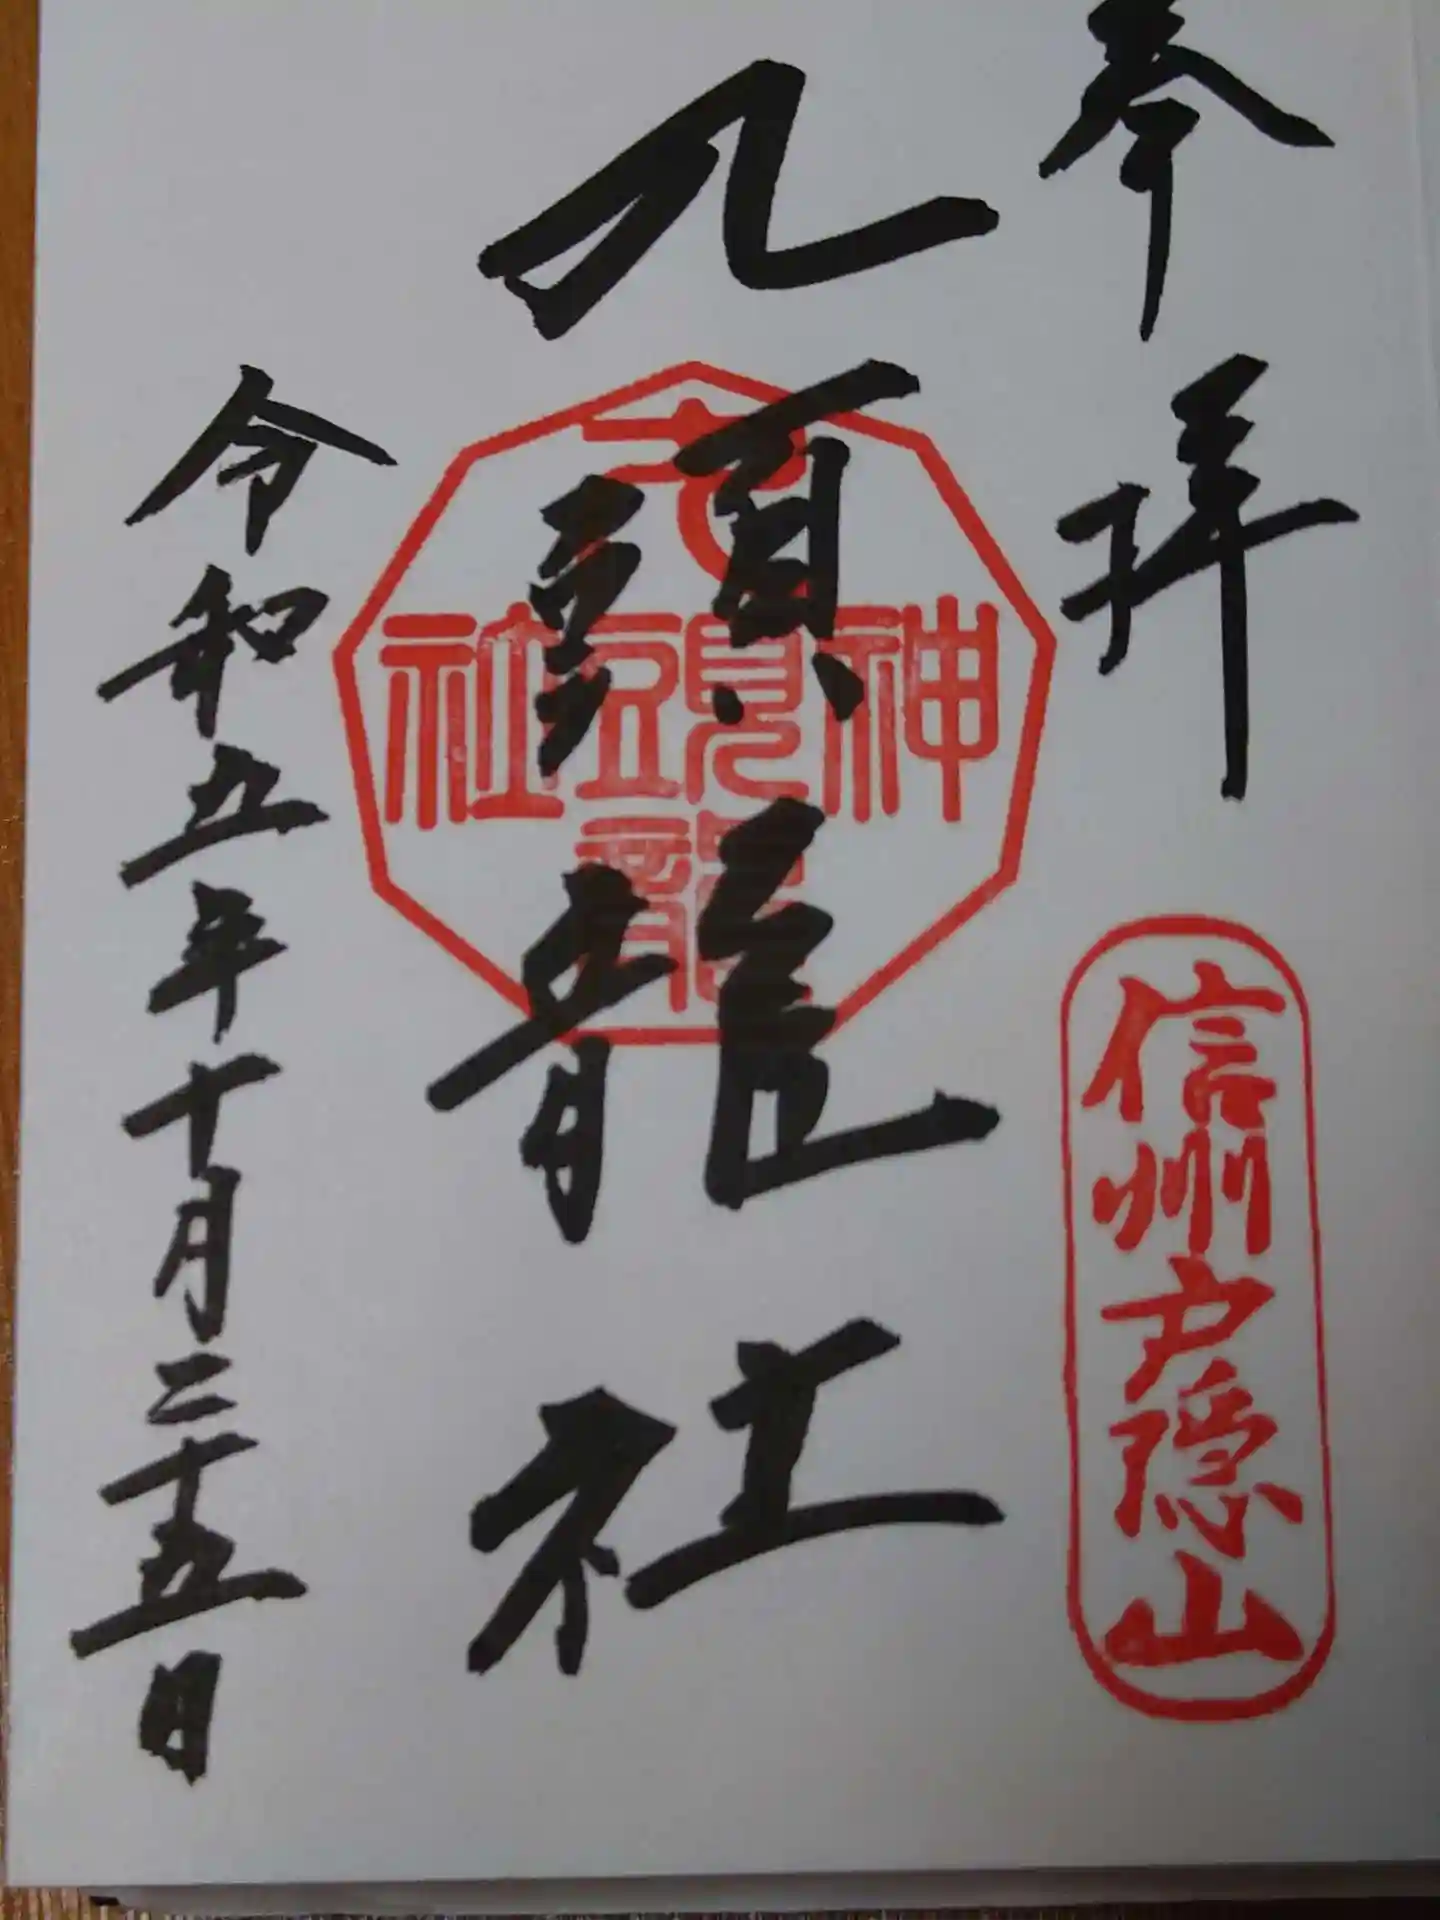 奉拝
信州戸隠山
九頭龍社
九
神頭社
龍
令和五年十月二十五日